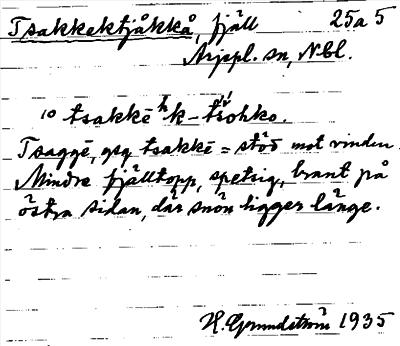 Tsakkektjåkkå, fjäll 25a 5
Arjepl. sn, Nbl.
10 tsakkē k - tšohko.
Tsaggē, gsg tsakkē = stöd mot vinden.
Mindre fjälltopp, spetsig, brant på
östra sidan, där snön ligger länge.
H. Grundström 1935